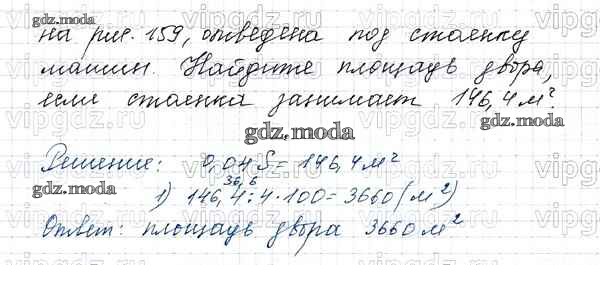 на рис. 159, отведена под стоянку
машин. Найдите площадь двора,
если стоянка занимает 146,4 м².
gdz.moda
Решение: 0,04 S = 146,4 м²
36,6
1) 146,4 : 4 · 100 = 3660 (м²)
Ответ: площадь двора 3660 м²